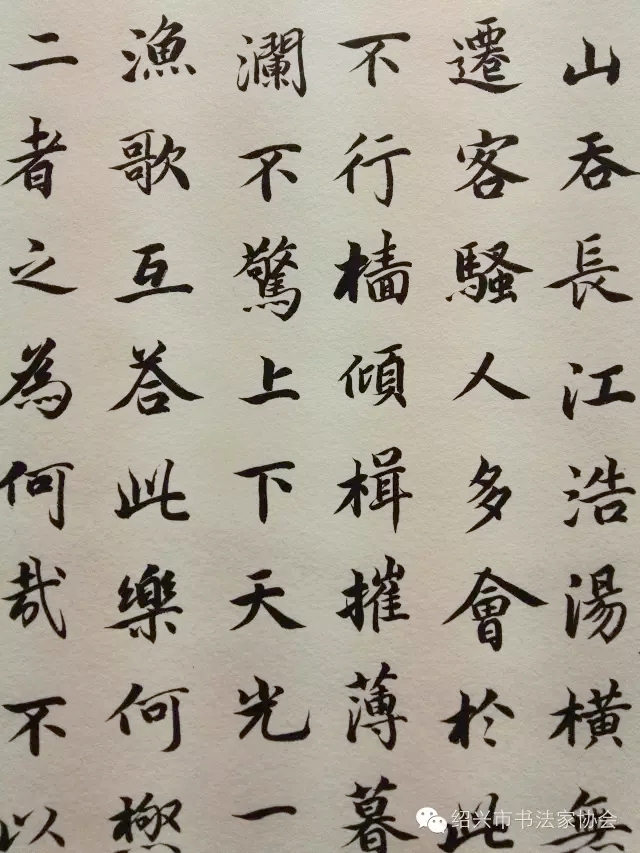 山吞長江浩湯橫無
遷客騷人多會於此
不行樯傾楫摧薄暮
瀾不驚上下天光一
漁歌互荅此樂何極
二者之為何哉不以
绍兴市书法家协会